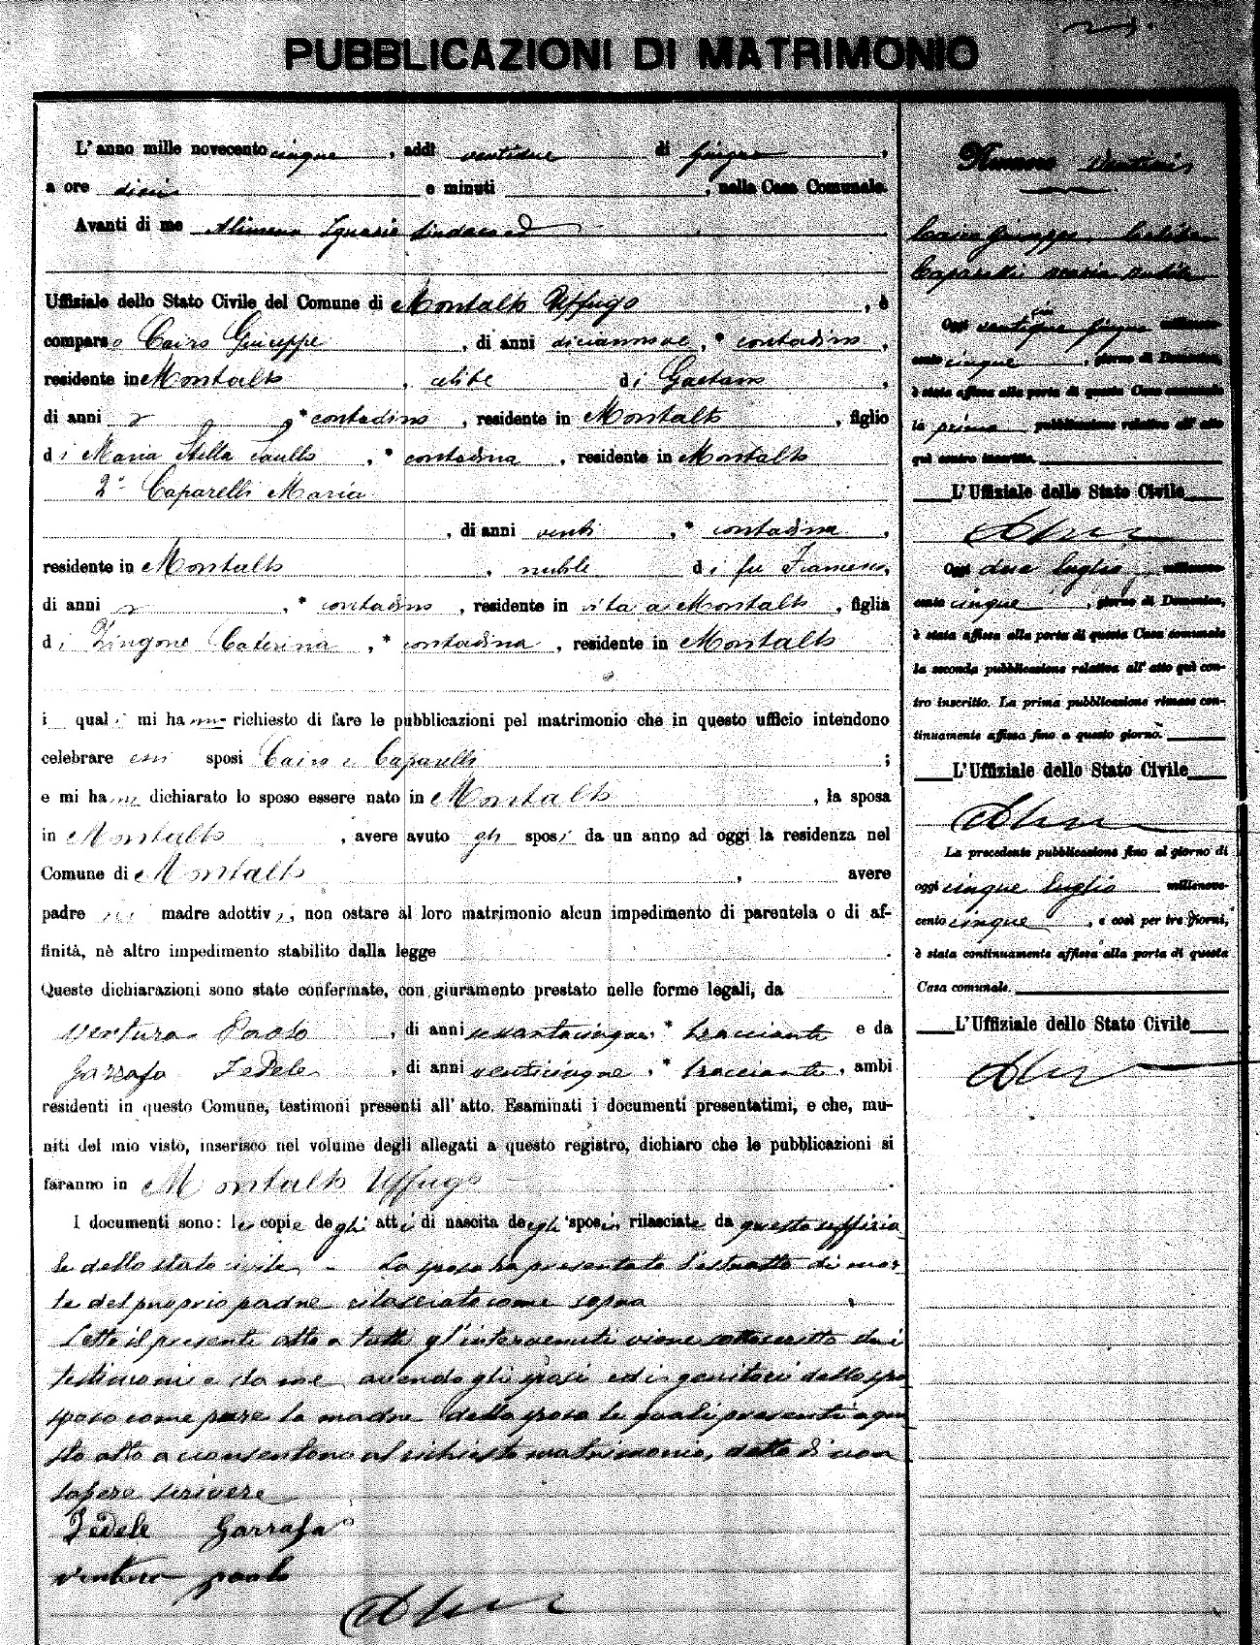 PUBBLICAZIONI DI MATRIMONIO
L'anno mille novecento cinque, addì ventidue di giugno,
a ore dieci e minuti , nella Casa Comunale.
Avanti di me Alimena Ignazio Sindaco ed
Uffiziale dello Stato Civile del Comune di Montalto Uffugo, è
comparso Cairo Giuseppe, di anni diciannove, * contadino,
residente in Montalto, celibe di Gaetano,
di anni , * contadino, residente in Montalto, figlio
di Maria Stella Saullo, * contadina, residente in Montalto
2° Caparelli Maria
, di anni venti, * contadina,
residente in Montalto, nubile di fu Francesco,
di anni , * contadino, residente in vita a Montalto, figlia
di Zingone Caterina, * contadina, residente in Montalto
i quali mi hanno richiesto di fare le pubblicazioni pel matrimonio che in questo ufficio intendono
celebrare essi sposi Cairo e Caparelli ;
e mi hanno dichiarato lo sposo essere nato in Montalto, la sposa
in Montalto, avere avuto gli sposi da un anno ad oggi la residenza nel
Comune di Montalto, avere
padre madre adottivi, non ostare al loro matrimonio alcun impedimento di parentela o di af-
finità, nè altro impedimento stabilito dalla legge .
Queste dichiarazioni sono state confermate, con giuramento prestato nelle forme legali, da
Ventura Paolo, di anni sessantacinque, * bracciante e da
Garrafa Fedele, di anni venticinque, * bracciante, ambi
residenti in questo Comune, testimoni presenti all'atto. Esaminati i documenti presentatimi, e che, mu-
niti del mio visto, inserisco nel volume degli allegati a questo registro, dichiaro che le pubblicazioni si
faranno in Montalto Uffugo .
I documenti sono: le copie degli atti di nascita degli sposi, rilasciate da questo uffizia
le dello stato civile - La sposa ha presentato l'estratto di mor-
te del proprio padre rilasciato come sopra
Letto il presente atto a tutti gl'intervenuti viene sottoscritto dai
testimoni e da me avendo gli sposi ed i genitori dello spo
sposo come pure la madre della sposa le quali presenti a que
sto atto acconsentono al richiesto matrimonio, detto di non
sapere scrivere
Fedele Garrafa
Ventura paolo
Numero
Cairo Giuseppe, Celibe
Caparelli Maria Nubile
Oggi giugno millenove-
cento cinque, giorno di Domenica,
è stata affissa alla porta di questa Casa comunale
la prima pubblicazione relativa all'atto
quì contro inscritto.
L'Uffiziale dello Stato Civile
Oggi due luglio millenove-
cento cinque, giorno di Domenica,
è stata affissa alla porta di questa Casa comunale
la seconda pubblicazione relativa all'atto quì con-
tro inscritto. La prima pubblicazione rimase con-
tinuamente affissa fino a questo giorno.
L'Uffiziale dello Stato Civile
La precedente pubblicazione fino al giorno di
oggi cinque luglio millenove-
cento cinque, e così per tre giorni,
è stata continuamente affissa alla porta di questa
Casa comunale.
L'Uffiziale dello Stato Civile